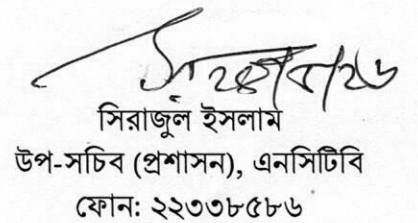 সিরাজুল ইসলাম
উপ-সচিব (প্রশাসন), এনসিটিবি
ফোন: ২২৩৩৮৫৮৬